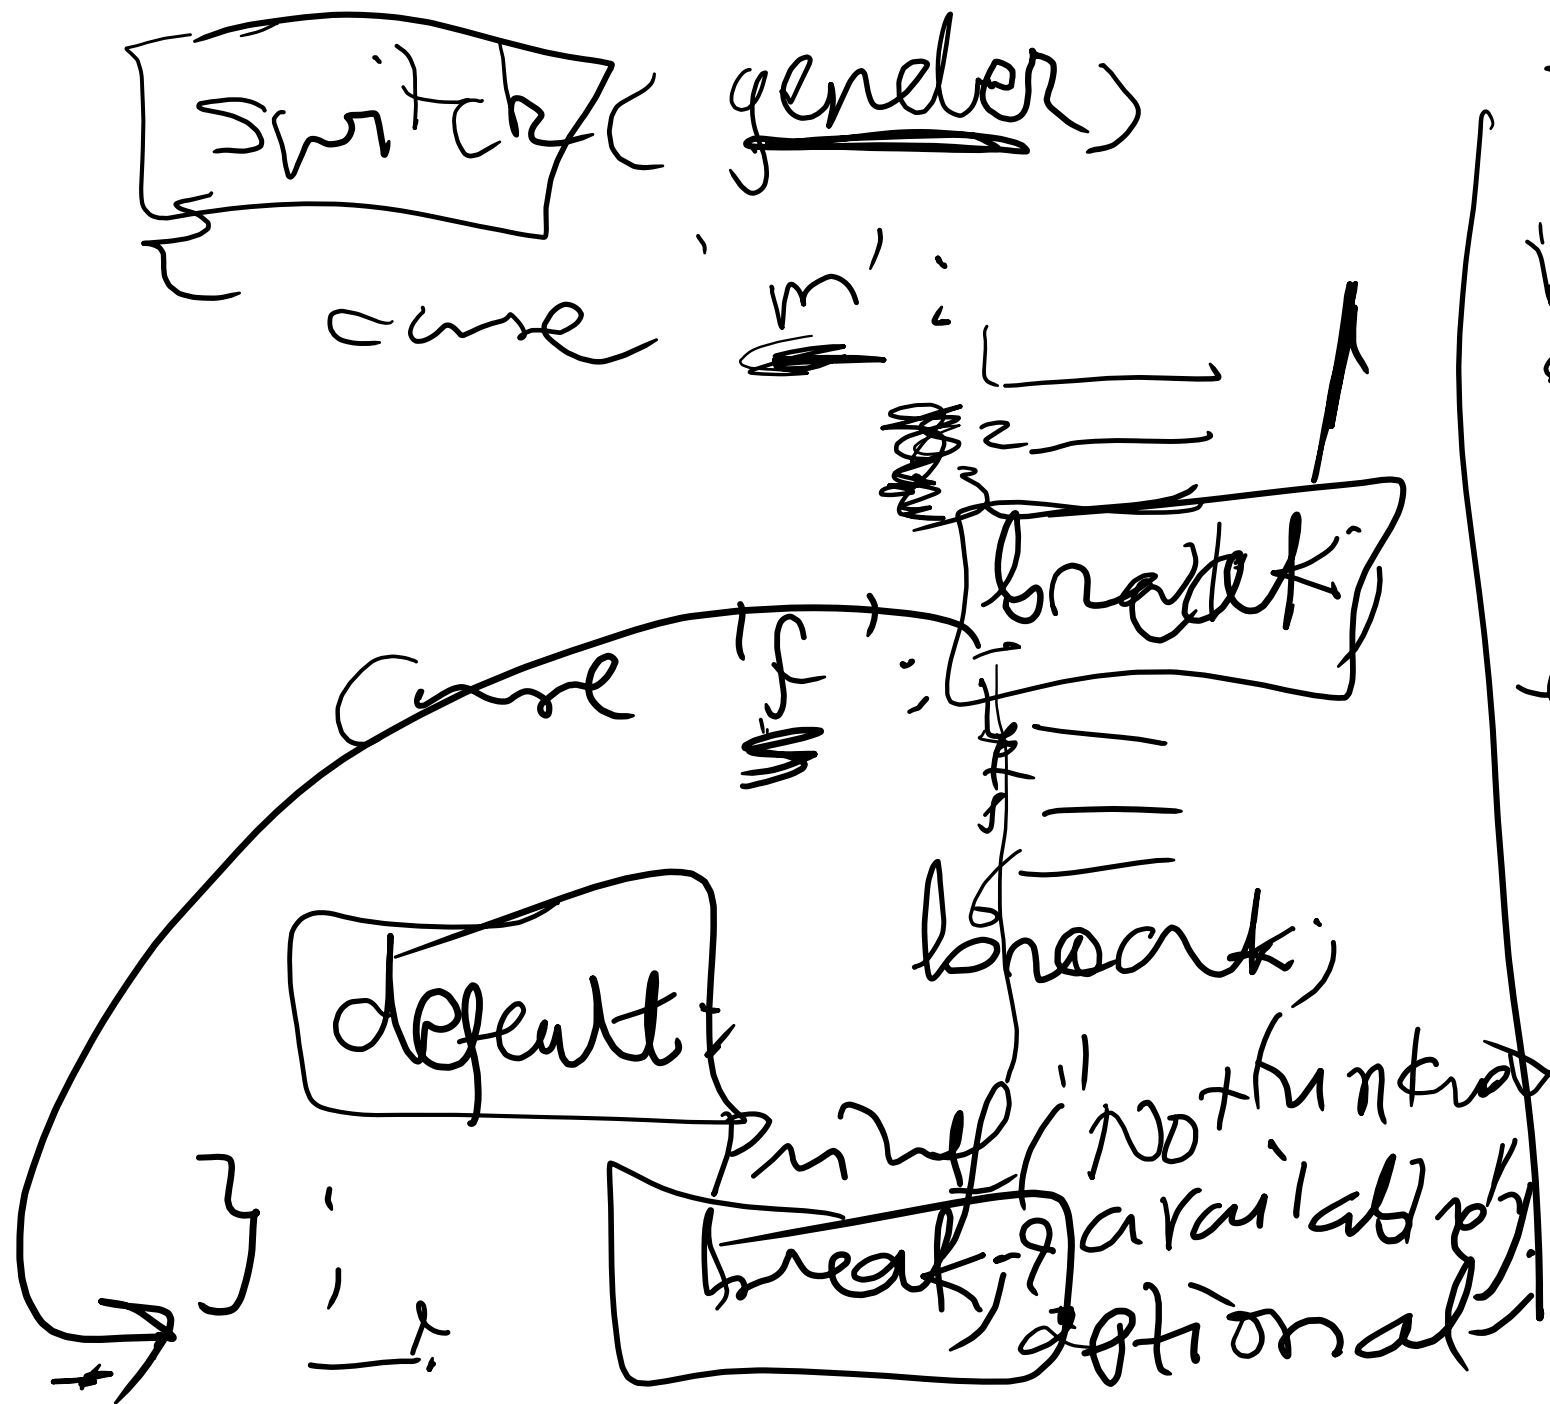 switch ( gender )
{
case 'm' :
1
2
break ;
case 'f' :
break ;
default :
printf ("Not
available")
break ; optional
} ;